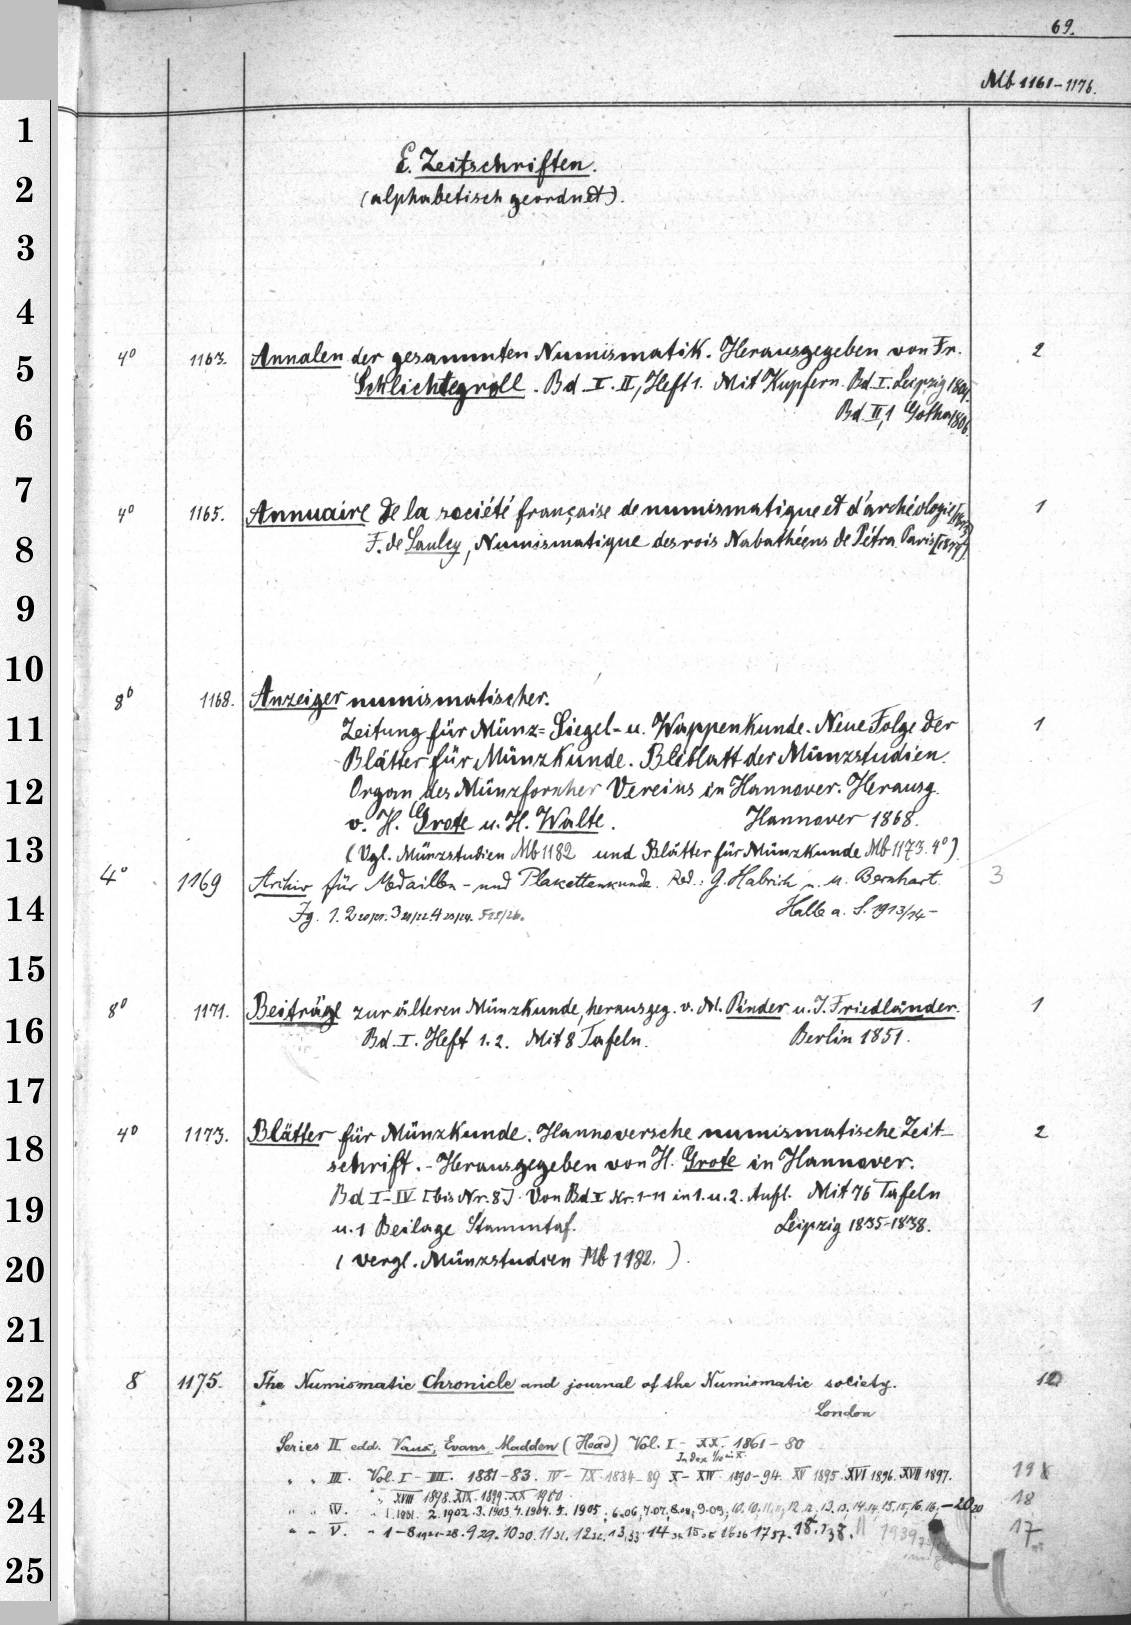 69.
Mb 1161-1176.
1
2
3
4
5
6
7
8
9
10
11
12
13
14
15
16
17
18
19
20
21
22
23
24
25
E. Zeitschriften.
(alphabetisch geordnet).
4° 1163. Annalen der gesammten Numismatik. Herausgegeben von Fr. 2
Schlichtegroll. Bd. I. II, Heft 1. Mit Kupfern. Bd. I. Leipzig 1804.
Bd. II,1 Gotha 1806.
4° 1165. Annuaire de la société française de numismatique et d'archéologie 1
F. de Saulcy, Numismatique des rois Nabathéens de Pétra. Paris
8° 1168. Anzeiger numismatischer.
Zeitung für Münz= Siegel- u. Wappenkunde. Neue Folge der 1
Blätter für Münzkunde. Beiblatt der Münzstudien.
Organ des Münzforscher Vereins in Hannover. Herausg.
v. H. Grote u. H. Walte. Hannover 1868.
(Vgl. Münzstudien Mb 1182 und Blätter für Münzkunde Mb 1173. 4°)
4° 1169 Archiv für Medaillen- und Plakettenkunde. Red.: G. Habich u. M. Bernhart. 3
Jg. 1. 2 20/21. 3 21/22. 4 23/24. 5 25/26. Halle a. S. 1913/14-
8° 1171. Beiträge zur älteren Münzkunde, herausgeg. v. M. Pinder u. J. Friedländer. 1
Bd. I. Heft 1. 2. Mit 8 Tafeln. Berlin 1851.
4° 1173. Blätter für Münzkunde. Hannoversche numismatische Zeit- 2
schrift. - Herausgegeben von H. Grote in Hannover.
Bd I-IV [bis Nr. 8]. Von Bd I Nr. 1-11 in 1. u. 2. Aufl. Mit 76 Tafeln
u. 1 Beilage Stammtaf. Leipzig 1835-1838.
(vergl. Münzstudien Mb 1182.)
8 1175. The Numismatic Chronicle and journal of the Numismatic society.
London
Series II edd. Vaux, Evans, Madden (Head) Vol. I - XX. 1861-80
" " III. Vol. I - III. 1881-83. IV - IX 1884-89 X - XIV 1890-94. XV 1895. XVI 1896. XVII 1897.
XVIII 1898. XIX. 1899. XX 1900.
" " IV. " 1. 1901. 2. 1902. 3. 1903. 4. 1904. 5. 1905. 6. 06, 7. 07, 8. 08, 9. 09, 10. 10, 11. 11, 12. 12, 13. 13, 14. 14, 15. 15, 16. 16, -20 20 18
" " V. " 1-8 1921-28. 9 29. 10 30. 11 31. 12 32. 13 33. 14 34. 15 35. 16 36. 17 37. 18. 38. 1939 17